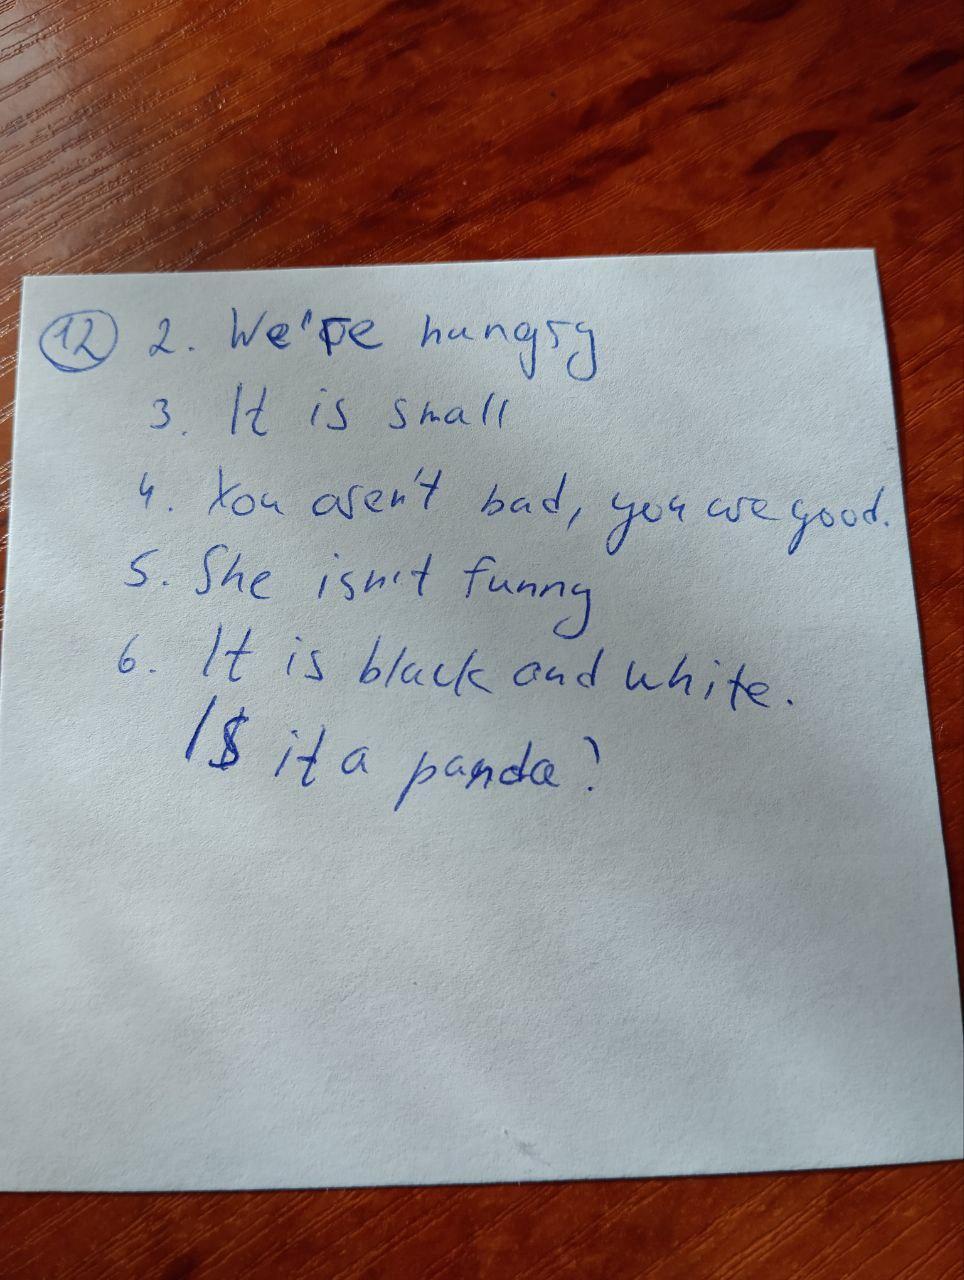 12 2. We're hungry
3. It is small
4. You aren't bad, you are good.
5. She isn't funny
6. It is black and white.
Is it a panda?